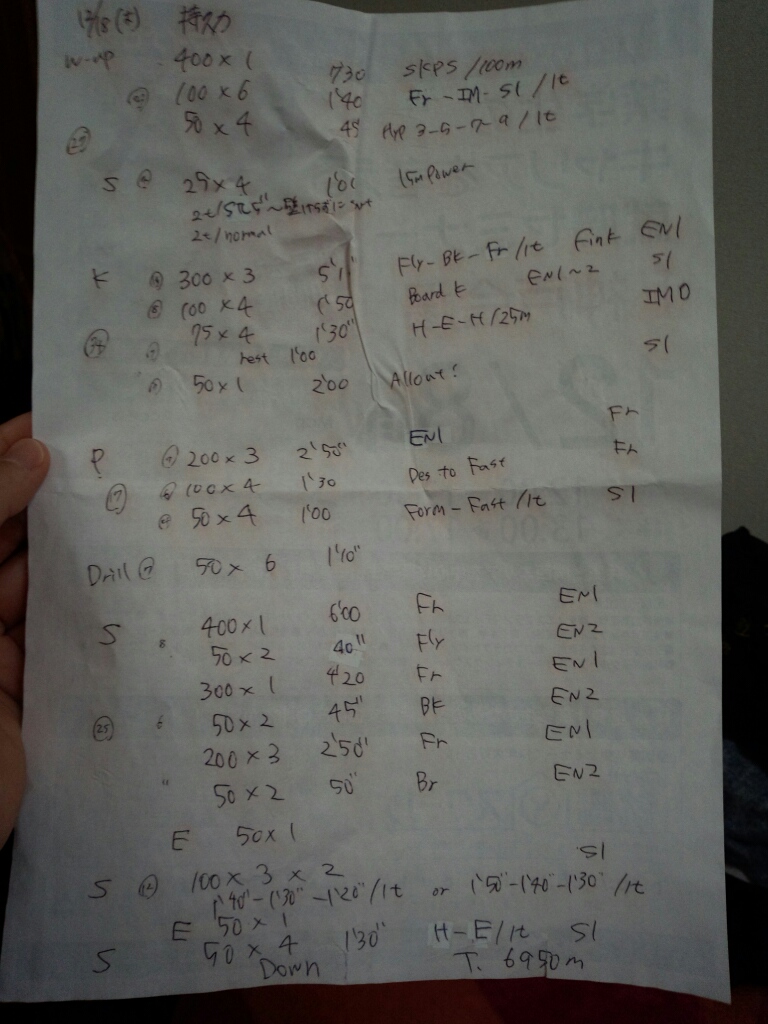 12/18 (土) 持久力
W-up 400×1 7'30 SKPS/100m
100×6 1'40 Fr-IM-S1/1t
50×4 45" Hyp 3-5-7-9/1t
S 25×4 1'00 15m Power
2t/normal
K 300×3 5'1 Fly-Bk-Fr/1t Fink EN1
100×4 1'50 Board K EN1~2 S1
75×4 1'30" H-E-H/25m IMO
rest 1'00
50×1 2'00 Allout! S1
P 200×3 2'50" EN1 Fr
100×4 1'30 Des to Fast Fr
50×4 1'00 Form-Fast/1t S1
Drill 50×6 1'10"
S 400×1 6'00 Fr EN1
50×2 40" Fly EN2
300×1 4'20 Fr EN1
50×2 45" Bk EN2
200×3 2'50" Fr EN1
50×2 50" Br EN2
E 50×1
S 100×3×2 S1
1'40"-1'30"-1'20"/1t or 1'50"-1'40"-1'30"/1t
E 50×1
S 50×4 1'30" H-E/1t S1
Down T. 6950m